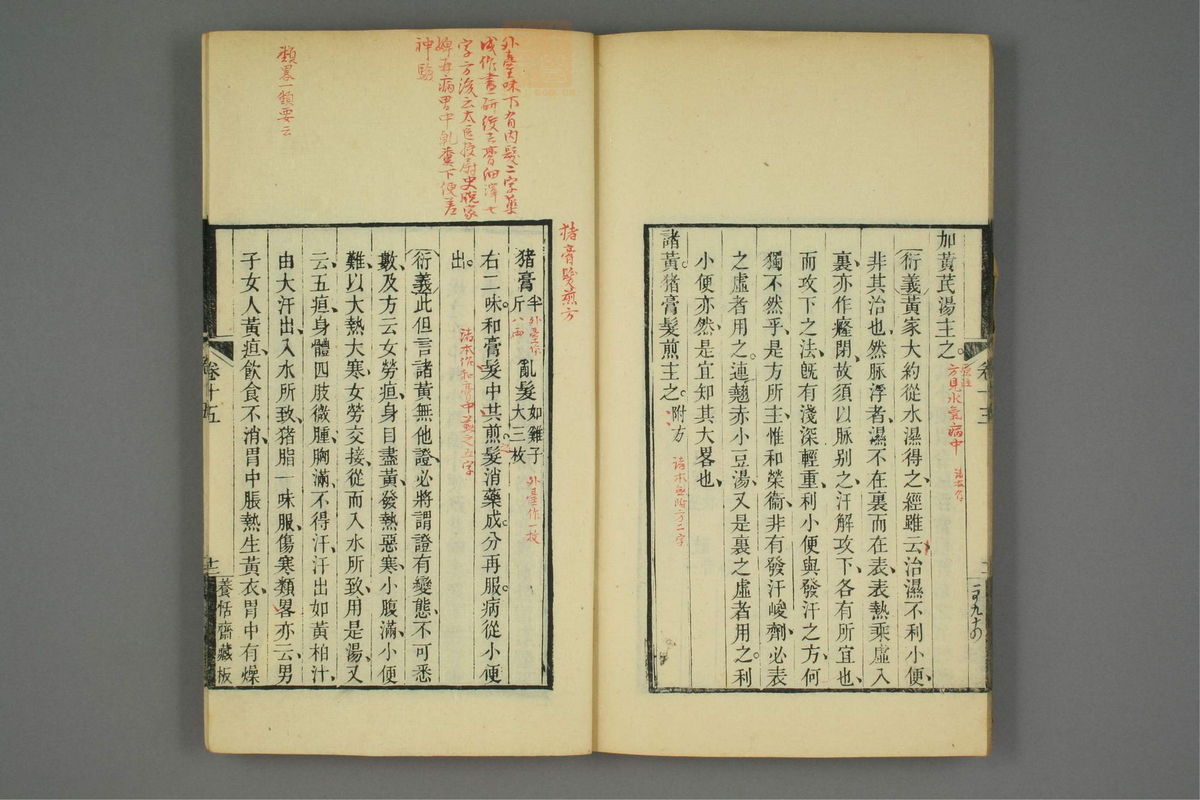 加黃芪湯主之。
原注方見水氣病中
衍義黃家大約從水濕得之經雖云治濕不利小便
非其治也然脉浮者濕不在裏而在表表熱乘虛入
裏亦作癃閉故須以脉别之汗解攻下各有所宜也
而攻下之法旣有淺深輕重利小便與發汗之方何
獨不然乎是方所主惟和榮衞非有發汗峻劑必表
之虛者用之。連翹赤小豆湯又是裏之虛者用之。利
小便亦然是宜知其大畧也
諸黃猪膏髮煎主之。附方
諸本無附方二字
猪膏髮煎方
猪膏半斤 亂髮如雞子大三枚
外臺作八兩
外臺作一枚
右二味。和膏髮中共煎。髮消藥成。分再服。病從小便
出。
諸本作和膏中煎之五字
衍義此但言諸黃無他證必將謂證有變態不可悉
數及方云女勞疸身目盡黃發熱惡寒小腹滿小便
難以大熱大寒女勞交接從而入水所致用是湯又
云五疸身體四肢微腫胸滿不得汗汗出如黃柏汁
由大汗出入水所致猪脂一味服傷寒類畧亦云男
子女人黃疸飲食不消胃中脹熱生黃衣胃中有燥
外臺味下有內髮二字藥
成作盡研後云膏細澤七
字方後云太醫校尉史脫家
婢再病胃中乾糞下便差
神驗
類畧一類要云
卷十五
養恬齋藏板